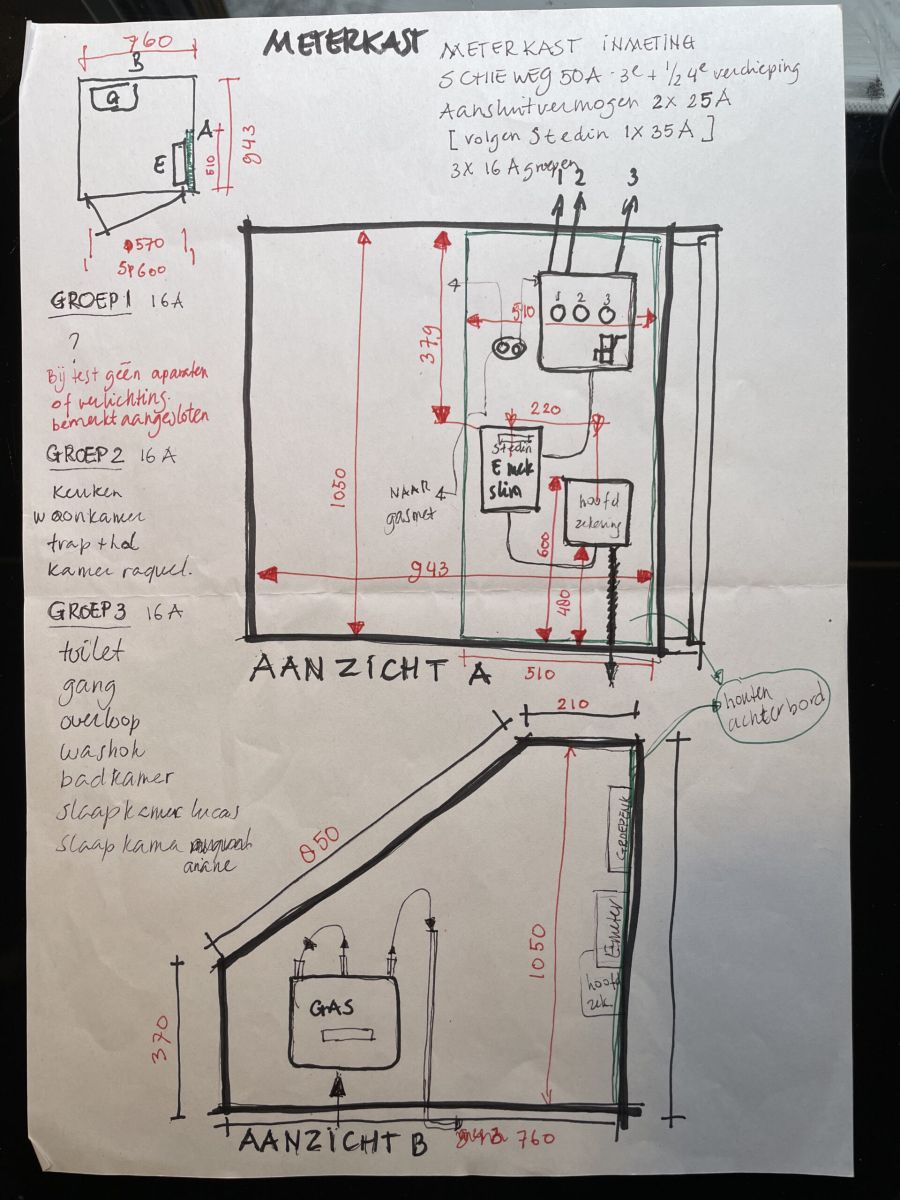 METERKAST
METERKAST INMETING
SCHIEWEG 50A · 3e + 1/2 4e verdieping
Aansluitvermogen 2x 25A
[volgen Stedin 1x 35A]
3x 16 A groepen
760
B
G
A
E
510
943
570
600
GROEP 1 16A
?
Bij test géén aparaten
of verlichting
bemerkt aangesloten
GROEP 2 16A
keuken
woonkamer
trap + hal
kamer raquel.
GROEP 3 16A
toilet
gang
overloop
washok
badkamer
slaapkamer lucas
slaapkamer
ariane
1 2 3
1 2 3
510
379
220
1050
Stedin
E
slim
NAAR
gasmet
hoofd
zekering
600
480
943
AANZICHT A
510
houten
achterbord
210
850
1050
370
GROEPENK
E meter
hoofd
zek
GAS
AANZICHT B
760